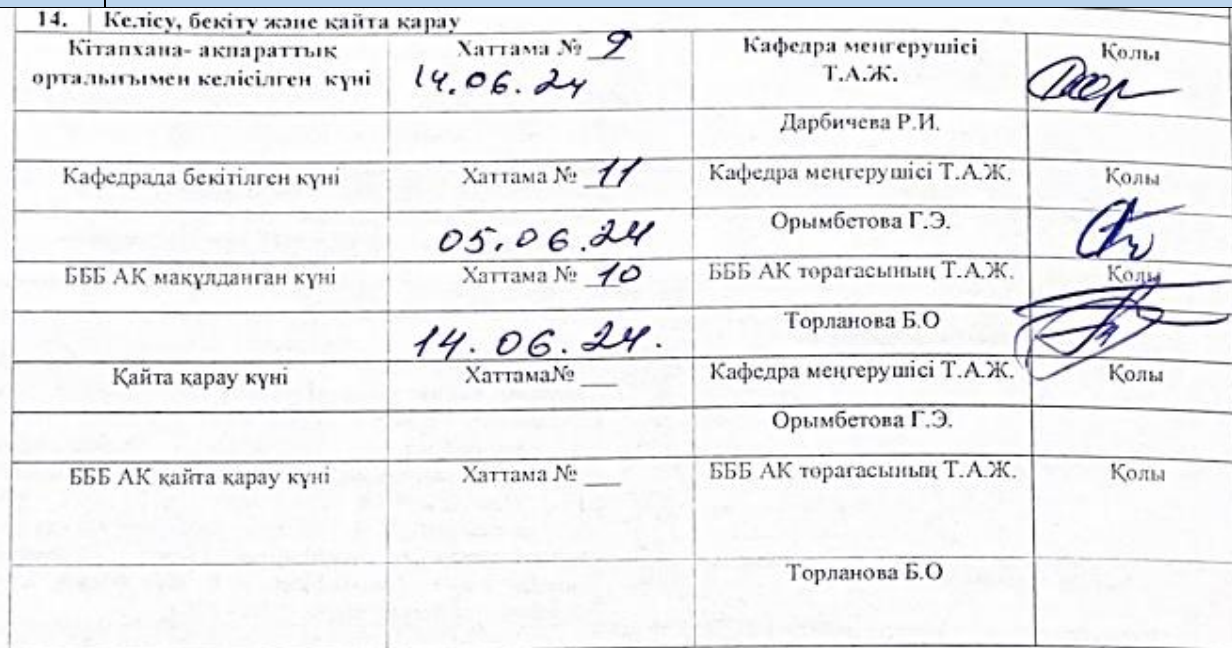 14. Келісу, бекіту және қайта қарау
Кітапхана- ақпараттық орталығымен келісілген күні
Хаттама № 9
14.06.24
Кафедра меңгерушісі Т.А.Ж.
Қолы
Дарбичева Р.И.
Кафедрада бекітілген күні
Хаттама № 11
Кафедра меңгерушісі Т.А.Ж.
Қолы
05.06.24
Орымбетова Г.Э.
БББ АК мақұлданған күні
Хаттама № 10
БББ АК төрағасының Т.А.Ж.
Қолы
14.06.24.
Торланова Б.О
Қайта қарау күні
Хаттама№ ___
Кафедра меңгерушісі Т.А.Ж.
Қолы
Орымбетова Г.Э.
БББ АК қайта қарау күні
Хаттама № ___
БББ АК төрағасының Т.А.Ж.
Қолы
Торланова Б.О